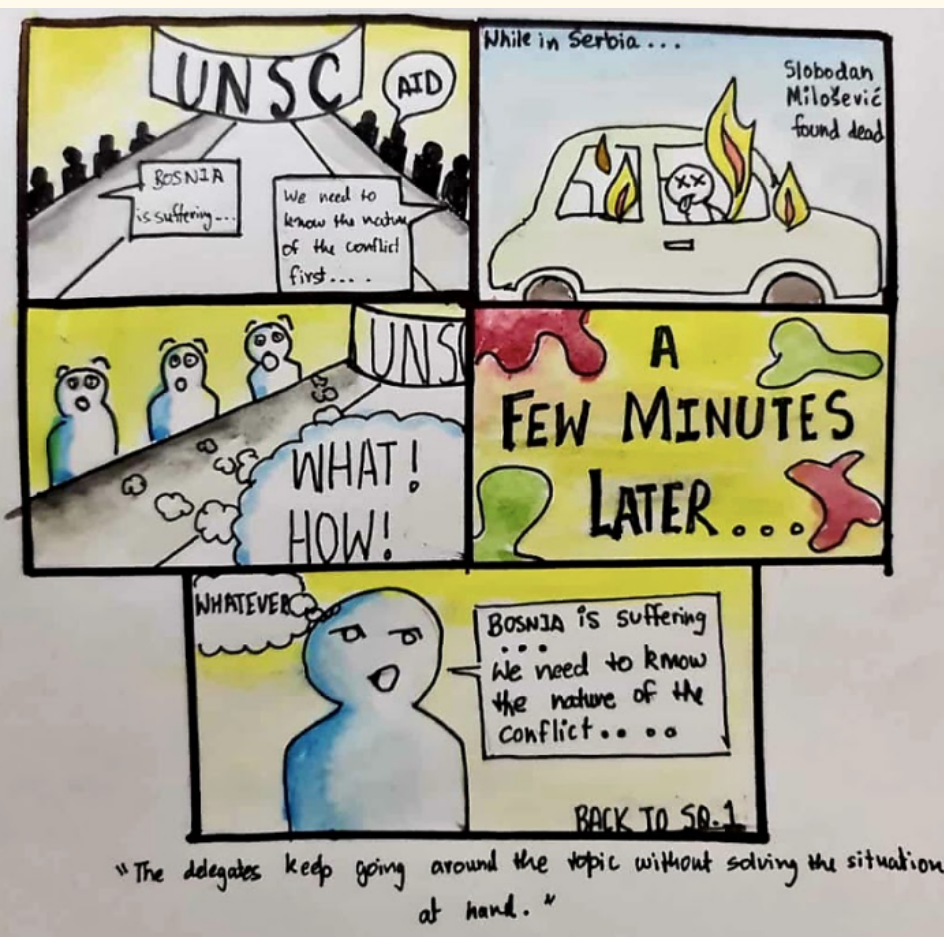 UNSC
AID
BOSNIA
is suffering...
We need to
know the nature
of the conflict
first....
While in Serbia...
Slobodan
Milošević
found dead
UNSC
WHAT!
HOW!
A
FEW MINUTES
LATER...
WHATEVER
BOSNIA is suffering
...
We need to know
the nature of the
conflict.....
BACK TO SQ.1
"The delegates keep going around the topic without solving the situation
at hand."